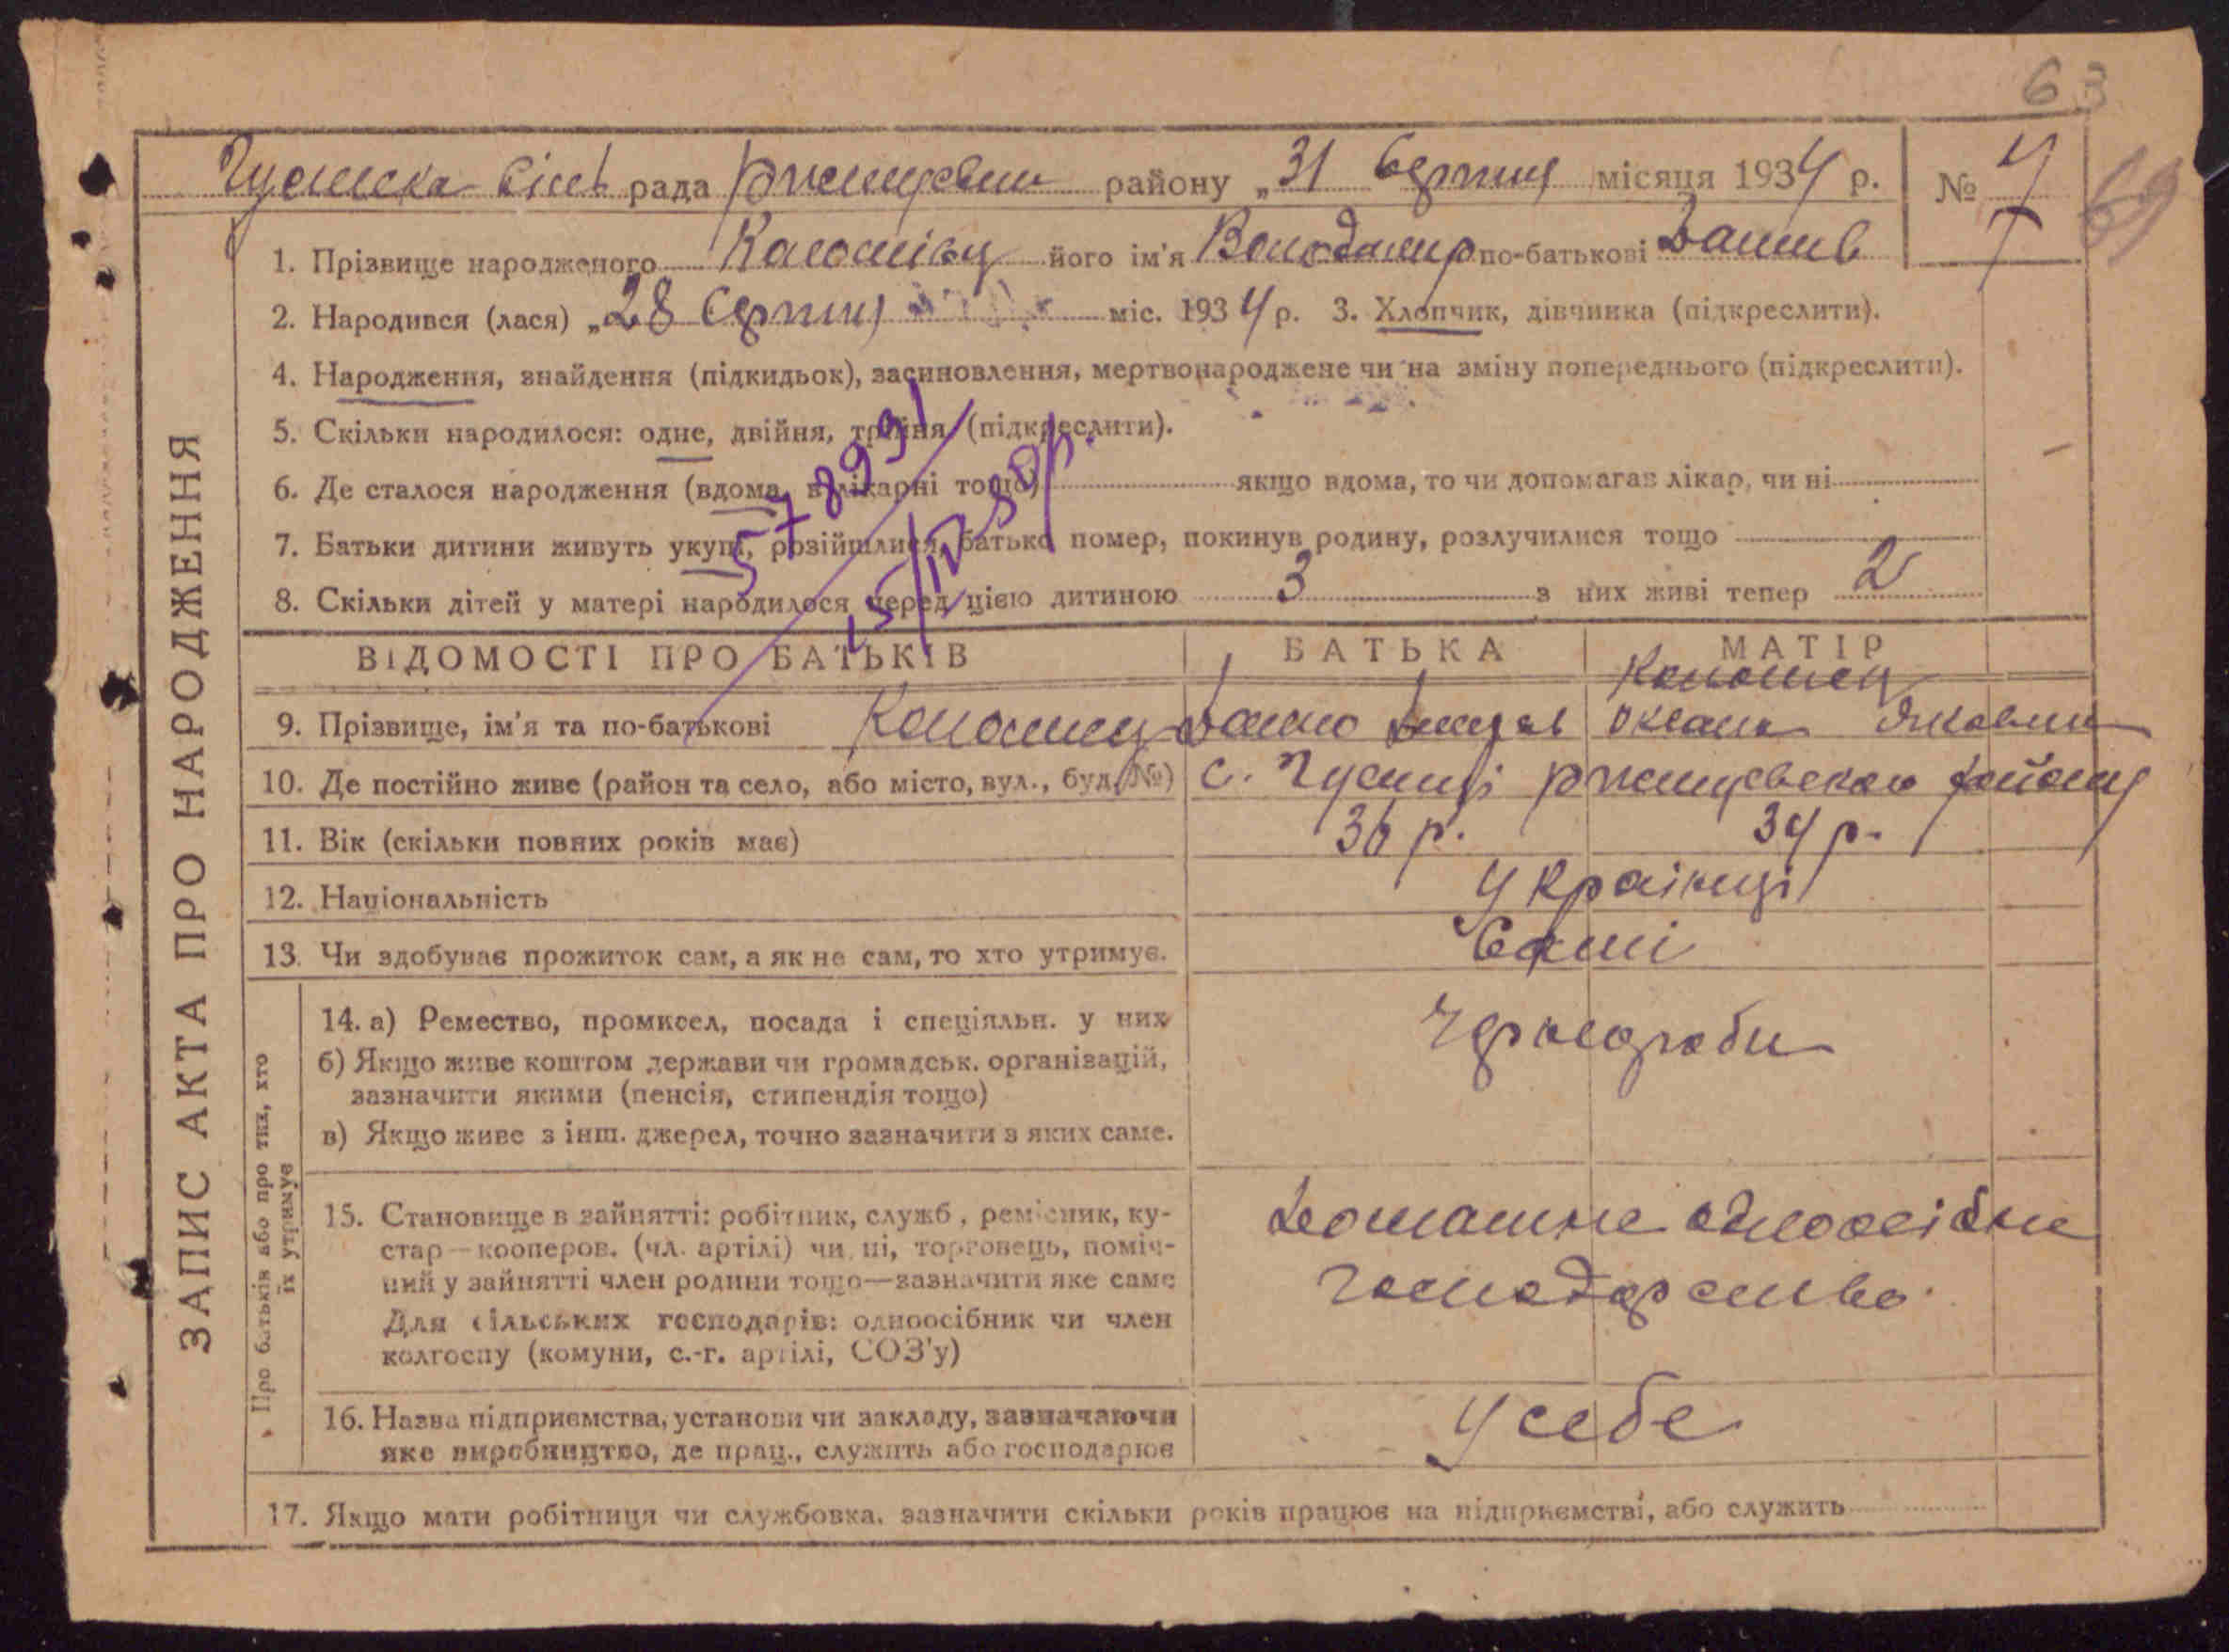 63
69
Гусинска сільрада Ржищевськ району „31 серпня місяця 1934 р. № 7
ЗАПИС АКТА ПРО НАРОДЖЕННЯ
1. Прізвище народженого Коломієць його ім'я Володимир по-батькові
2. Народився (лася) „28 серпня міс. 1934 р. 3. Хлопчик, дівчинка (підкреслити).
4. Народження, знайдення (підкидьок), засиновлення, мертвонароджене чи на зміну попереднього (підкреслити).
5. Скільки народилося: одне, двійня, трійня (підкреслити).
6. Де сталося народження (вдома, в лікарні тощо) якщо вдома, то чи допомагав лікар, чи ні
7. Батьки дитини живуть укупі, розійшлися, батько помер, покинув родину, розлучилися тощо
8. Скільки дітей у матері народилося перед цією дитиною 3 з них живі тепер 2
ВІДОМОСТІ ПРО БАТЬКІВ БАТЬКА МАТІР
9. Прізвище, ім'я та по-батькові Коломиец Коломиец Оксана Яковл
10. Де постійно живе (район та село, або місто, вул., буд. №) с. района
11. Вік (скільки повних років має) 36 р. 34 р.
12. Національність Українці
13. Чи здобуває прожиток сам, а як не сам, то хто утримує. Самі
Про батьків або про тих, хто
їх утримує
14. а) Ремество, промисел, посада і спеціяльн. у них Чорнороби
б) Якщо живе коштом держави чи громадськ. організацій,
зазначити якими (пенсія, стипендія тощо)
в) Якщо живе з інш. джерел, точно зазначити з яких саме.
15. Становище в зайнятті: робітник, служб., ремісник, ку-
стар—кооперов. (чл. артілі) чи ні, торговець, поміч-
ний у зайнятті член родини тощо—зазначити яке саме
Для сільських господарів: одноосібник чи член
колгоспу (комуни, с.-г. артілі, СОЗ'у)
Домашне одноосібне
господарство.
16. Назва підприємства, установи чи закладу, зазначаючи
яке виробництво, де прац., служить або господарює
У себе
17. Якщо мати робітниця чи службовка, зазначити скільки років працює на підприємстві, або служить